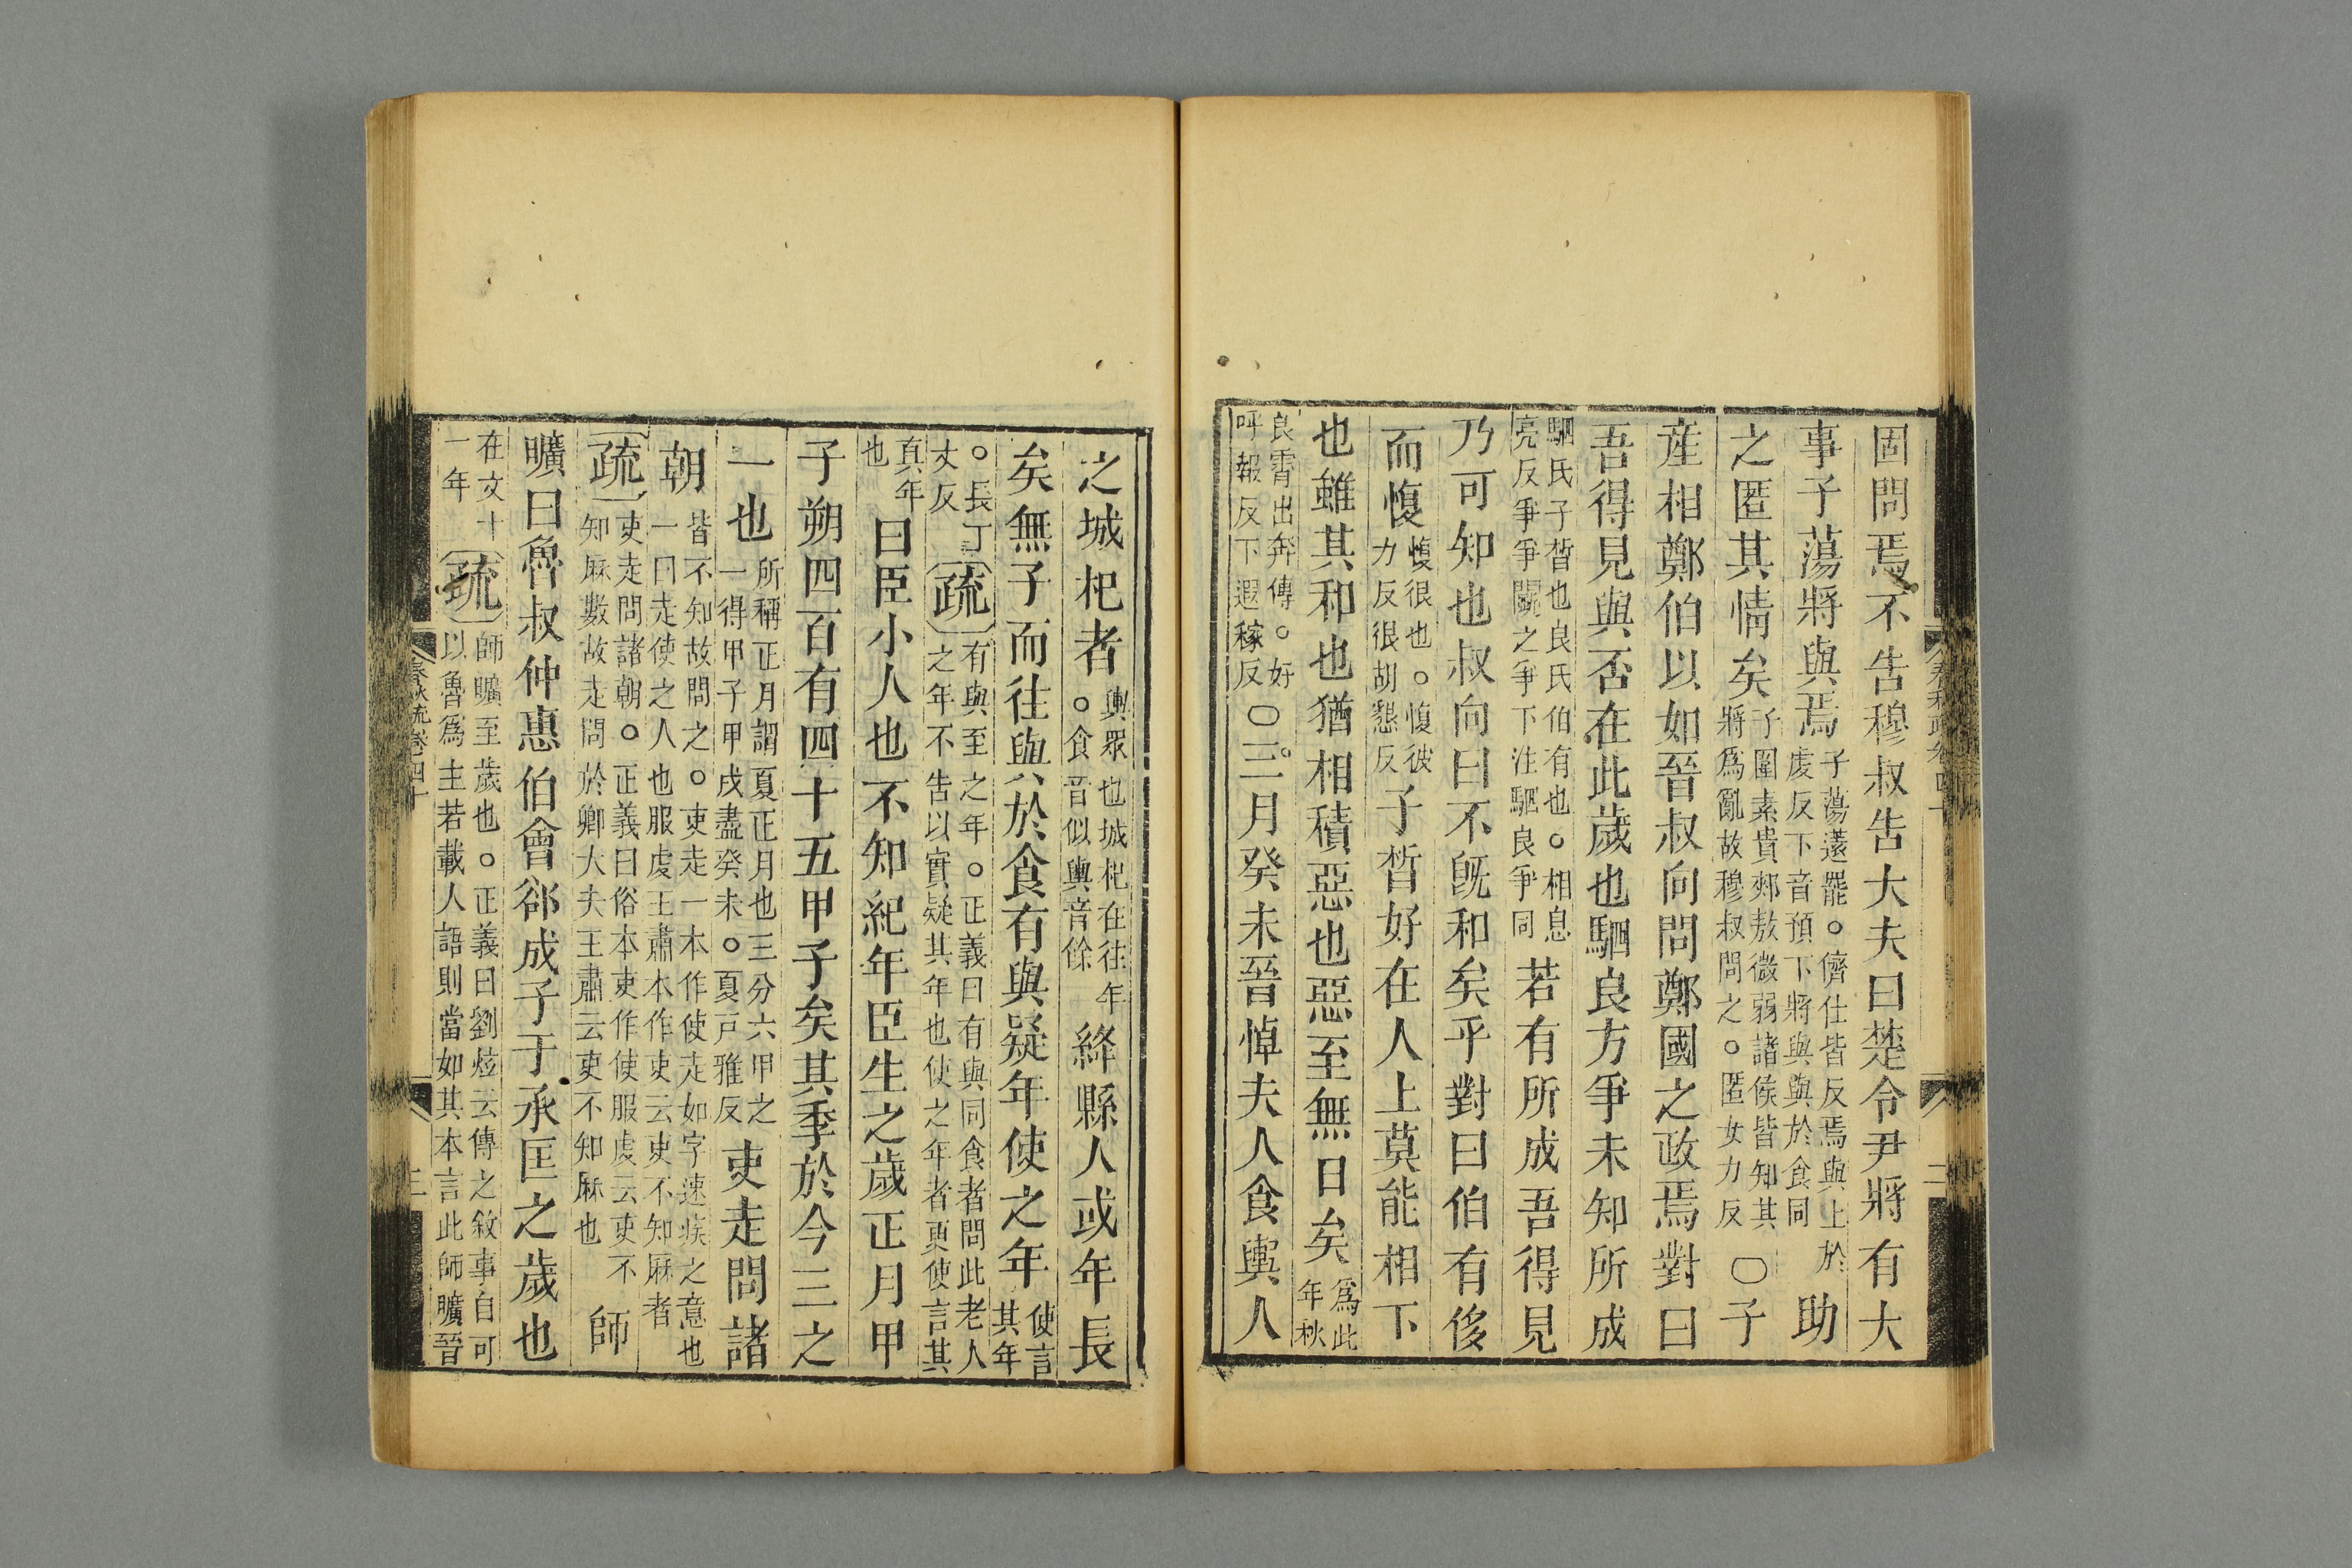 春秋疏卷四十 二
固問焉不告穆叔告大夫曰楚令尹將有大
事子蕩將與焉子蕩薳罷。儕仕皆反焉與上於虔反下音預下將與與於食同助
之匿其情矣子圍素貴郟敖微弱諸侯皆知其將爲亂故穆叔問之。匿女力反〇子
產相鄭伯以如晉叔向問鄭國之政焉對曰
吾得見與否在此歲也駟良方爭未知所成
駟氏子晳也良氏伯有也。相息亮反爭爭鬭之爭下注駟良爭同若有所成吾得見
乃可知也叔向曰不旣和矣乎對曰伯有侈
而愎愎很也。愎彼力反很胡懇反子晳好在人上莫能相下
也雖其和也猶相積惡也惡至無日矣爲此年秋
良霄出奔傳。好呼報反下遐稼反〇三月癸未晉悼夫人食輿人
之城杞者輿眾也城杞在往年。食音似輿音餘絳縣人或年長
矣無子而往與於食有與疑年使之年使言其年
。長丁丈反疏有與至之年。正義曰有與同食者問此老人之年不告以實疑其年也使之年者更使言其
真年也曰臣小人也不知紀年臣生之歲正月甲
子朔四百有四十五甲子矣其季於今三之
一也所稱正月謂夏正月也三分六甲之一得甲子甲戌盡癸未。夏戸雅反吏走問諸
朝皆不知故問之。吏走一本作使走如字速疾之意也一曰走使之人也服虔王肅本作吏云吏不知厤者
疏吏走問諸朝。正義曰俗本吏作使服虔云吏不知厤數故走問於卿大夫王肅云吏不知厤也師
曠曰魯叔仲惠伯會郤成子于承匡之歲也
在文十一年疏師曠至歲也。正義曰劉炫云傳之敘事自可以魯爲主若載人語則當如其本言此師曠晉
春秋疏卷四十